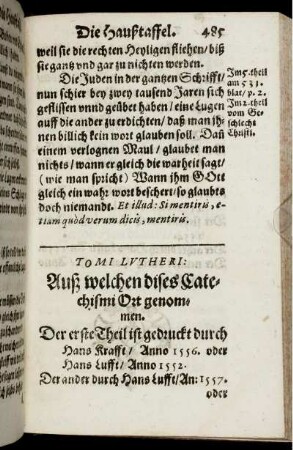 Die Haußtaffel. 485
weil sie die rechten Heyligen fliehen/ biß
sie gantz vnd gar zu nichten werden.
Die Juden in der gantzen Schrifft/
nun schier bey zwey tausend Jaren sich
geflissen vnnd geübet haben/ eine Lugen
auff die ander zu erdichten/ daß man ih-
nen billich kein wort glauben soll. Dañ
einem verlognen Maul/ glaubet man
nichts/ wann er gleich die warheit sagt/
(wie man spricht) Wann ihm GOtt
gleich ein wahr wort beschert/ so glaubts
doch niemandt. Et illud: Si mentiris, e-
tiam quòd verum dicis, mentiris.
Im 5. theil
am 531.
blat/ p. 2.
Im 2. theil
vom Ge-
schlecht
Christi.
TOMI LVTHERI:
Auß welchen dises Cate-
chismi Ort genom-
men.
Der erste Theil ist gedruckt durch
Hans Krafft/ Anno 1556. oder
Hans Lufft/ Anno 1552.
Der ander durch Hans Lufft/ An: 1557.
oder